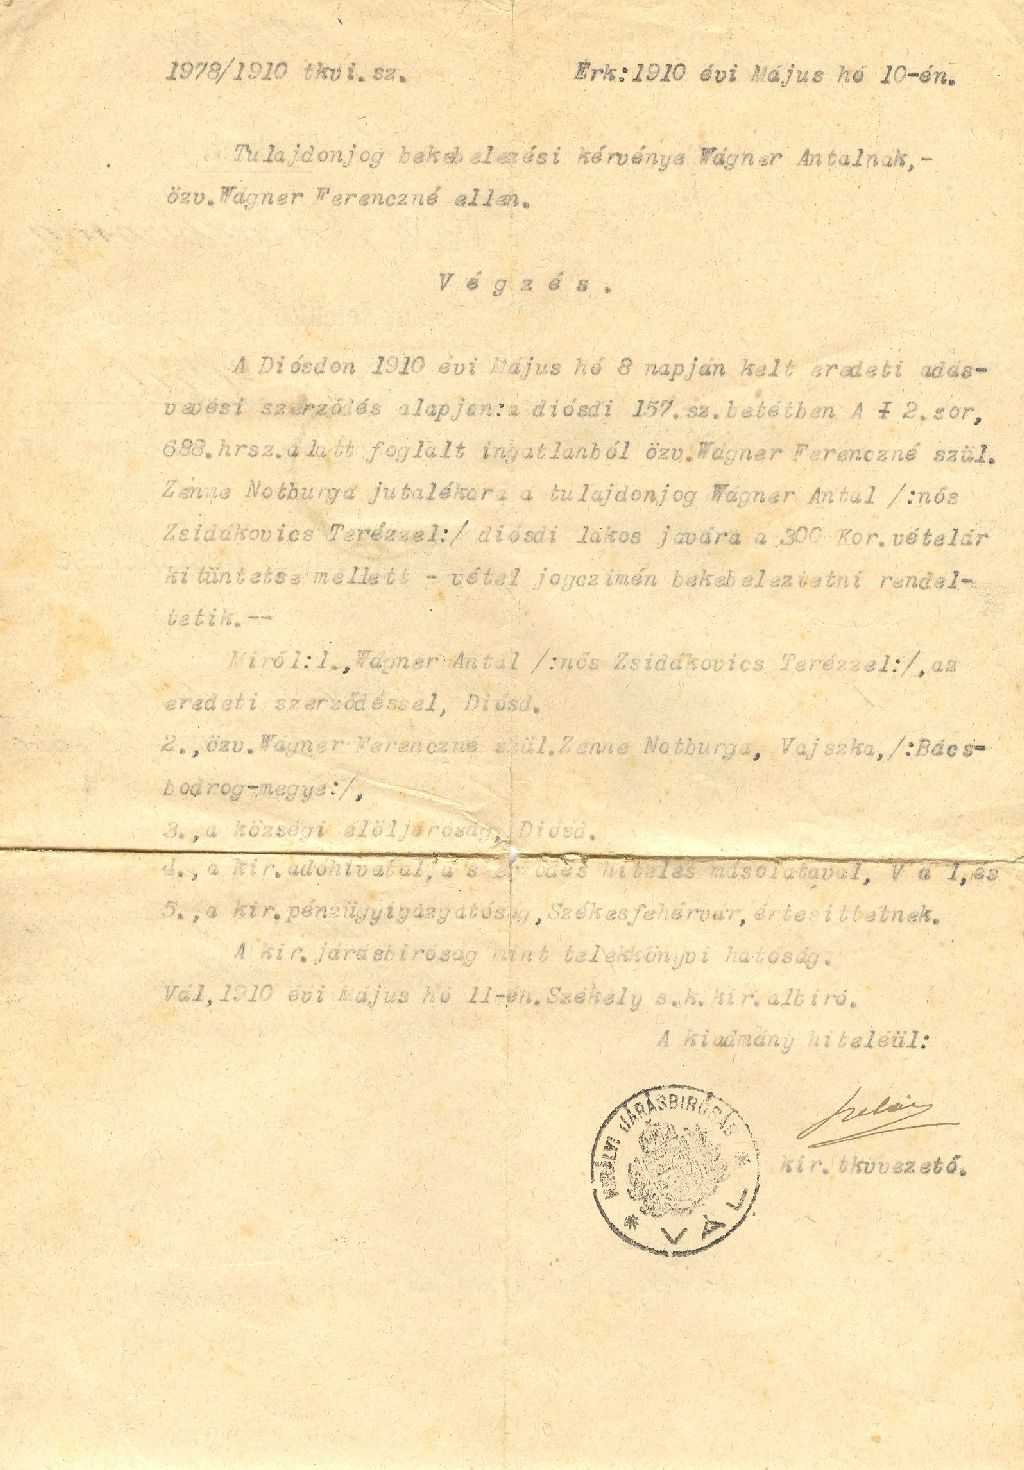 1978/1910 tkvi.sz. Érk:1910 évi Május hó 10-én.
Tulajdonjog bekebelezési kérvénye Wágner Antalnak,-
özv.Wágner Ferenczné ellen.
V é g z é s .
A Diósdon 1910 évi Május hó 8 napján kelt eredeti adás-
vevési szerződés alapján:a diósdi 157.sz.betétben A I 2.sor,
688.hrsz.alatt foglalt ingatlanból özv.Wágner Ferenczné szül.
Zenne Notburga jutalékára a tulajdonjog Wágner Antal /:nős
Zsidákovics Terézzel:/ diósdi lakos javára a 300 Kor.vételár
kitüntetse mellett - vétel jogczimén bekebeleztetni rendel-
tetik.--
Miről:1.,Wágner Antal /:nős Zsidákovics Terézzel:/,az
eredeti szerződéssel, Diósd.
2.,özv.Wágner Ferenczné szül.Zenne Notburga, Vajszka,/:Bács-
bodrog-megye:/,
3.,a községi élöljáróság, Diósd.
4.,a kir.adóhivatal,a hiteles másolatával, V á l,és
5.,a kir.pénzügyigázgatóság,Székesfehérvár,értesittetnek.
A kir.járásbiróság mint telekkönyvi hatóság.
Vál,1910 évi Május hó 11-én.Székely s.k.kir.albiró.
A kiadmány hiteléül:
KIRÁLYI JÁRÁSBIRÓSÁG * VÁL *
kir.tkvvezető.